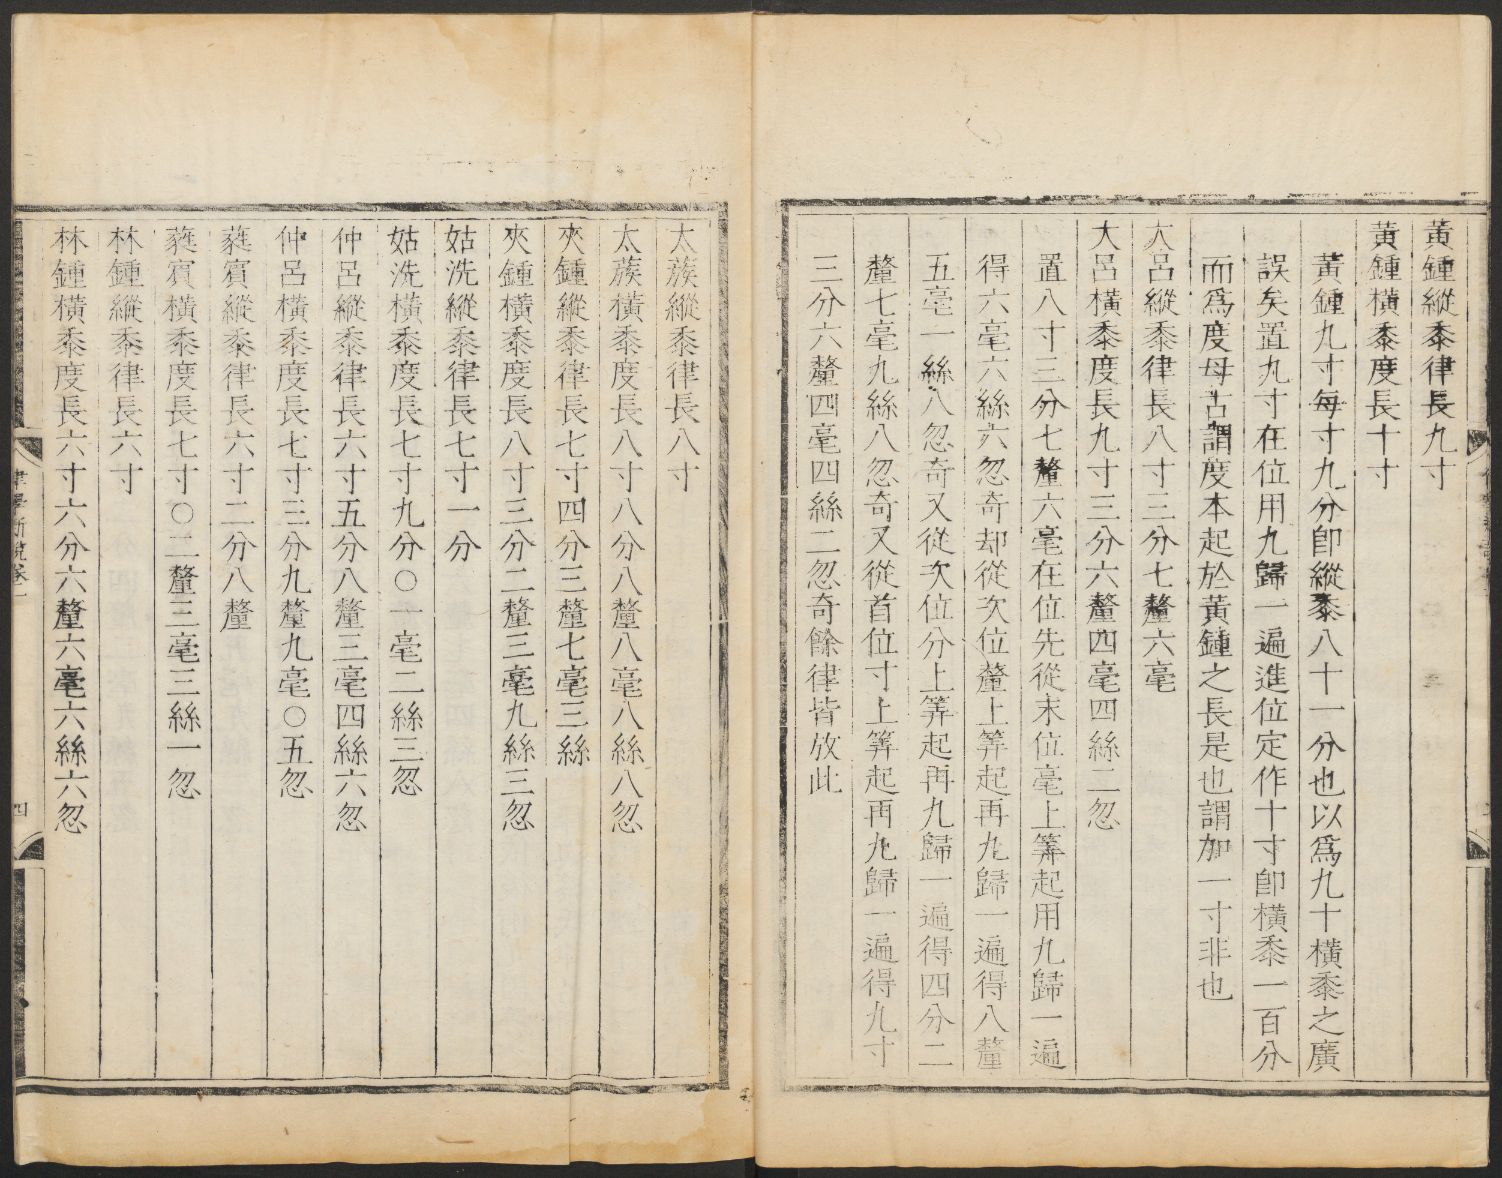 黃鍾縱黍律長九寸
黃鍾橫黍度長十寸
黃鍾九寸每寸九分卽縱黍八十一分也以爲九十橫黍之廣
誤矣置九寸在位用九歸一遍進位定作十寸卽橫黍一百分
而爲度母古謂度本起於黃鍾之長是也謂加一寸非也
大呂縱黍律長八寸三分七釐六毫
大呂橫黍度長九寸三分六釐四毫四絲二忽
置八寸三分七釐六毫在位先從末位毫上筭起用九歸一遍
得六毫六絲六忽奇却從次位釐上筭起再九歸一遍得八釐
五毫一絲八忽奇又從次位分上筭起再九歸一遍得四分二
釐七毫九絲八忽奇又從首位寸上筭起再九歸一遍得九寸
三分六釐四毫四絲二忽奇餘律皆放此
太蔟縱黍律長八寸
太蔟橫黍度長八寸八分八釐八毫八絲八忽
夾鍾縱黍律長七寸四分三釐七毫三絲
夾鍾橫黍度長八寸三分二釐三毫九絲三忽
姑洗縱黍律長七寸一分
姑洗橫黍度長七寸九分〇一毫二絲三忽
仲呂縱黍律長六寸五分八釐三毫四絲六忽
仲呂橫黍度長七寸三分九釐九毫〇五忽
蕤賓縱黍律長六寸二分八釐
蕤賓橫黍度長七寸〇二釐三毫三絲一忽
林鍾縱黍律長六寸
林鍾橫黍度長六寸六分六釐六毫六絲六忽
律學新說卷一
四